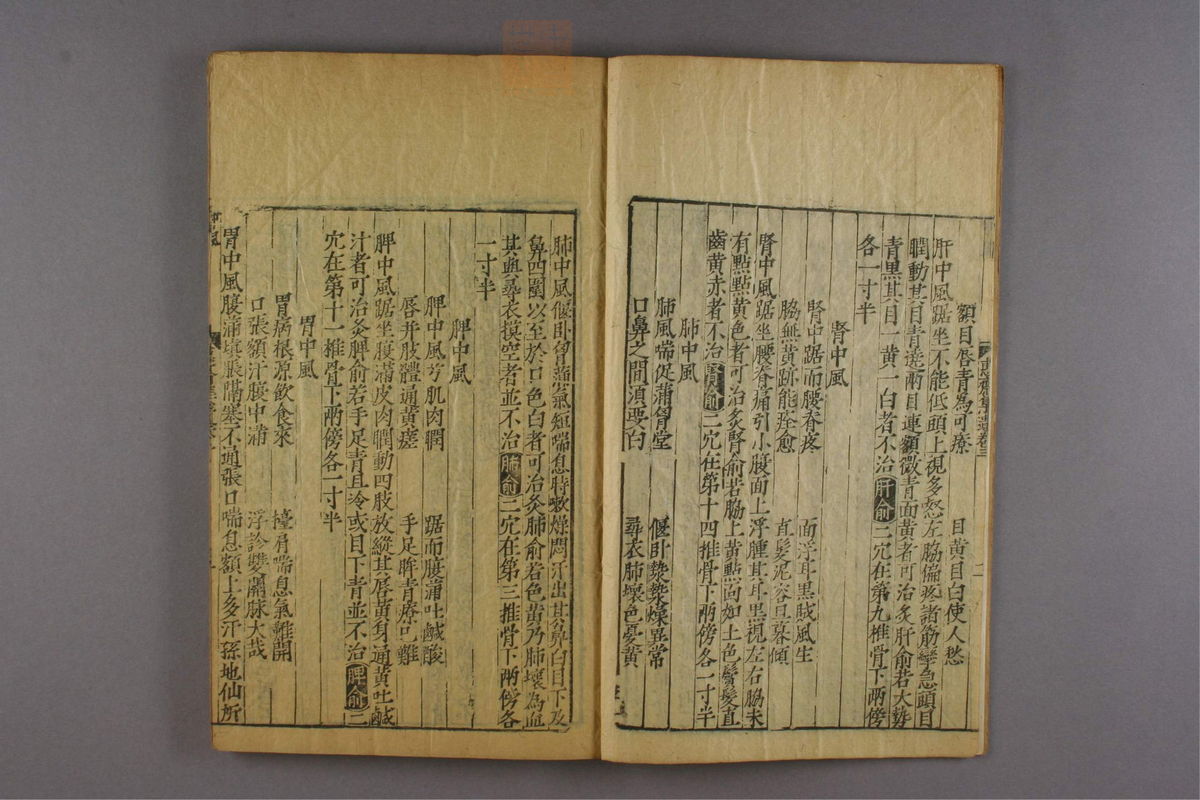 額目唇青為可療　目黃目白使人愁
肝中風踞坐不能低頭上視多怒左脇偏疼諸筋攣急頭目
瞤動其目青遶兩目連額微青面黃者可治灸肝俞若大勢
青黑其目一黃一白者不治肝俞二穴在第九椎骨下兩傍
各一寸半
腎中風
腎中踞而腰脊疼　面浮耳黑賊風生
脇無黃跡能痊愈　直髮泥容旦暮傾
腎中風踞坐腰脊痛引小腹面上浮腫其耳黑視左右脇未
有點點黃色者可治灸腎俞若脇上黃點面如土色鬢髮直
齒黃赤者不治腎俞二穴在第十四椎骨下兩傍各一寸半
肺中風
肺風喘促蒲胷堂　偃卧燥異常
口鼻之間須要白　尋衣肺壞色憂黃
肺中風偃卧胷蒲氣短喘息時嗽燥悶汗出其鼻白目下及
鼻四圍以至於口色白者可治灸肺俞若色黃乃肺壞為血
其與尋衣摸空者並不治肺俞二穴在第三椎骨下兩傍各
一寸半
脾中風
脾中風兮肌肉瞤　踞而腹蒲吐鹹酸
唇并肢體通黃瘥　手足眸青療已難
脾中風踞坐腹滿皮肉瞤動四肢放縱其唇黃身通黃吐鹹
汁者可治灸脾俞若手足青且冷或目下青並不治脾俞二
穴在第十一椎骨下兩傍各一寸半
胃中風
胃病根源飲食來　擡肩喘息氣難開
口張額汗膜中蒲　浮診雙關脉大哉
胃中風腹滿填脹膈塞不通張口喘息額上多汗孫地仙所